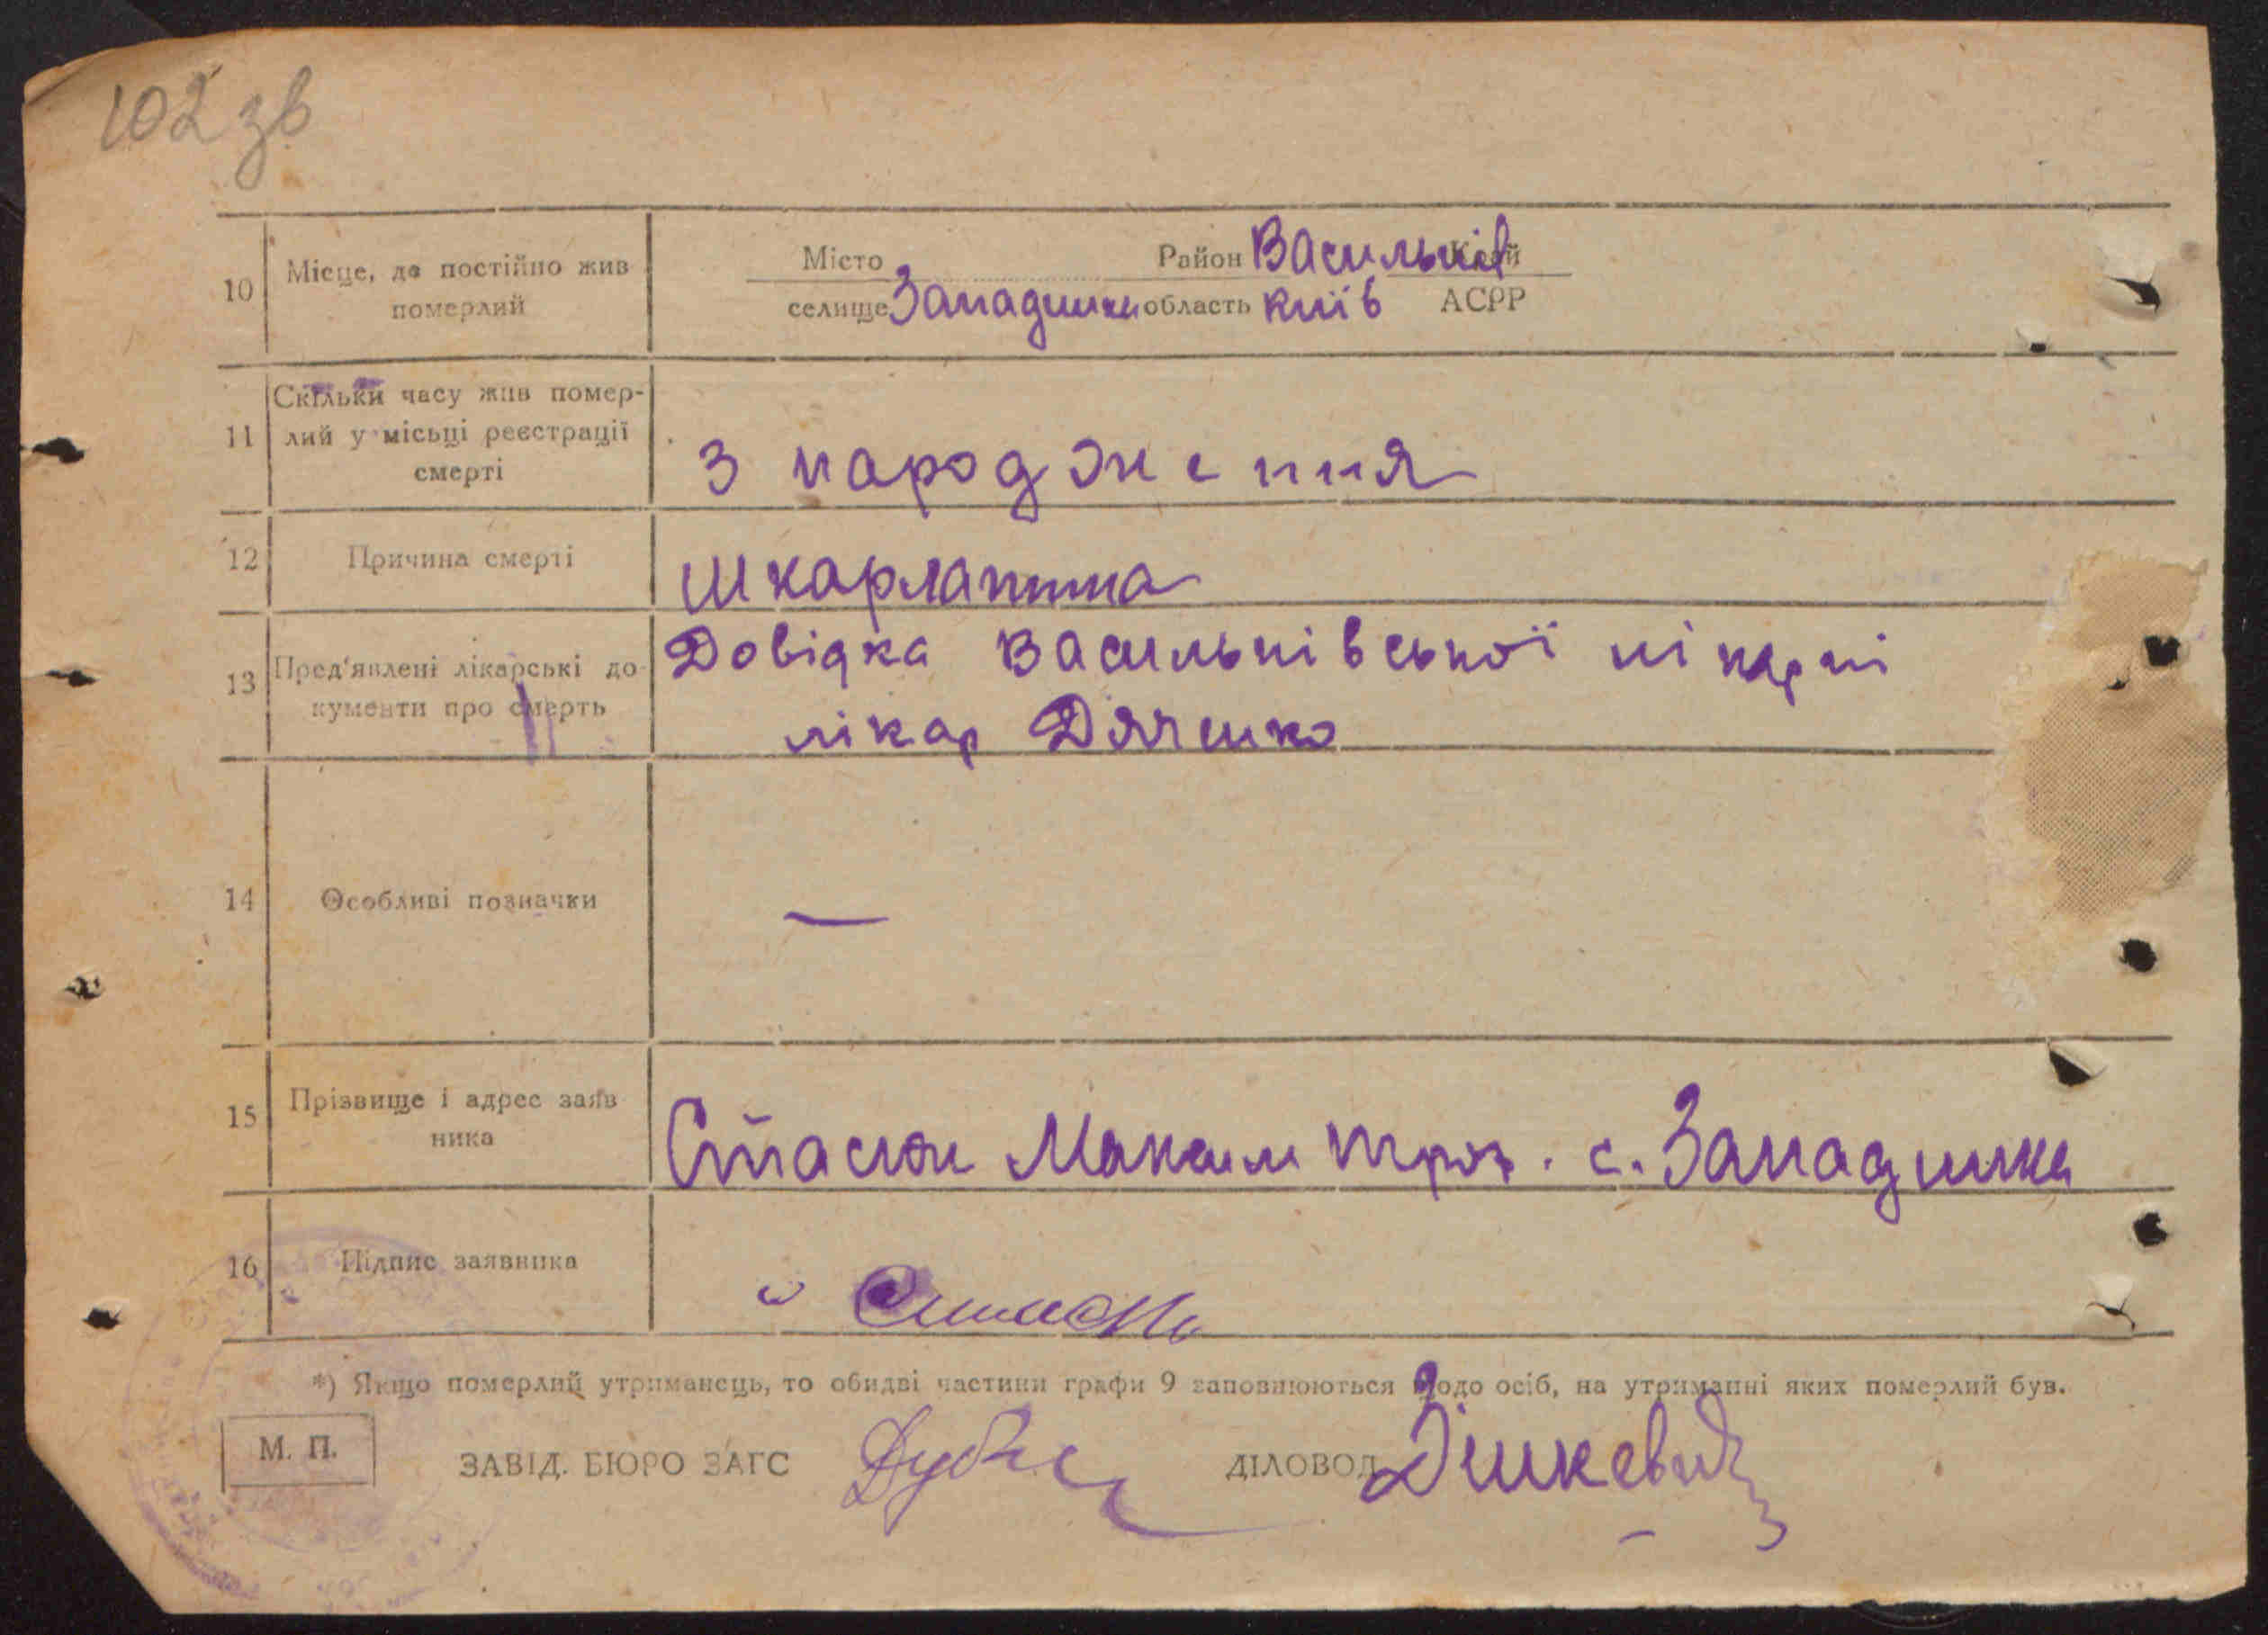 102 зв
10 Місце, де постійно жив померлий
Місто Район Васильків Край
селище Западинка область Київ АСРР
11 Скільки часу жив помер-
лий у місьці реєстрації
смерті
З народження
12 Причина смерті
Шкарлатина
13 Пред'явлені лікарські до-
кументи про смерть
Довідка Васильківської лікарні
лікар Дяченко
14 Особливі позначки
—
15 Прізвище і адрес заяв
ника
Стасюк Максим с. Западинка
16 Підпис заявника
*) Якщо померлий утриманець, то обидві частини графи 9 заповнюються щодо осіб, на утриманні яких померлий був.
М. П.
ЗАВІД. БЮРО ЗАГС ДІЛОВОД